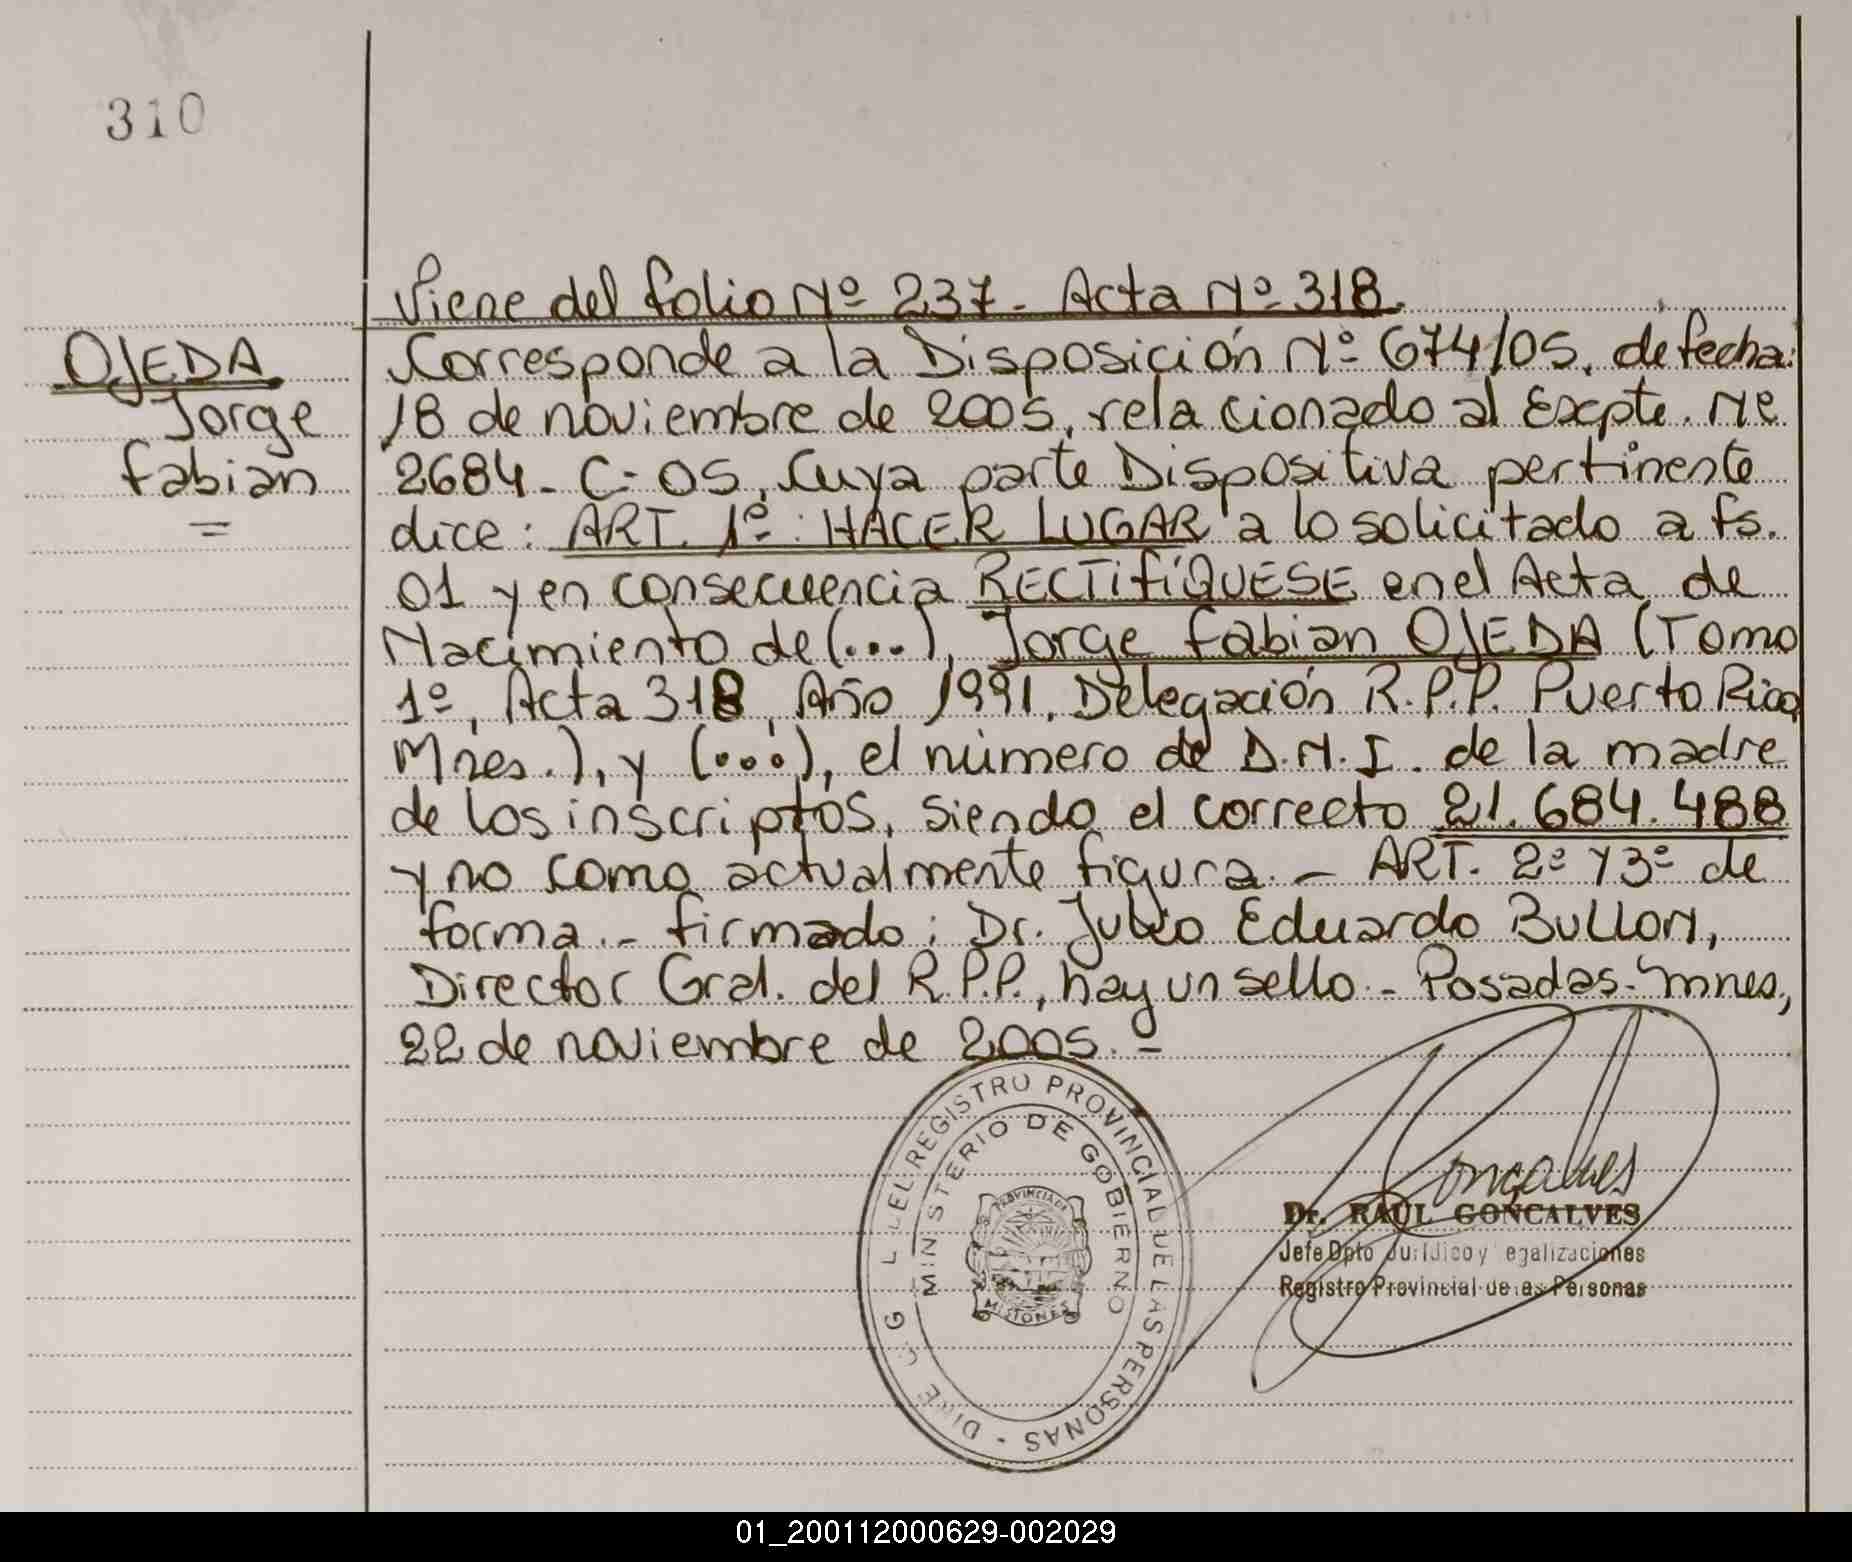 310
Viene del folio Nº 237 - Acta Nº 318.
OJEDA
Jorge
Fabian
=
Corresponde a la Disposición Nº 674/05, de fecha:
18 de noviembre de 2005, relacionado al Expte. Nº
2684 - C - 05, cuya parte Dispositiva pertinente
dice: ART. 1º: HACER LUGAR a lo solicitado a fs.
01 y en consecuencia RECTIFÍQUESE en el Acta de
Nacimiento de (...), Jorge Fabian OJEDA (Tomo
1º, Acta 318, Año 1991, Delegación R.P.P. Puerto Rico,
Mnes.), y (...), el número de D.N.I. de la madre
de los inscriptos, siendo el correcto 21.684.488
y no como actualmente figura. - ART. 2º y 3º de
forma. - Firmado: Dr. Julio Eduardo BULLON,
Director Gral. del R.P.P., hay un sello. - Posadas - Mnes,
22 de noviembre de 2005. -
REGISTRO PROVINCIAL DE LAS PERSONAS -
MINISTERIO DE GOBIERNO
PROVINCIA DE
MISIONES
Goncalves
Dr. RAUL GONCALVES
Jefe Dpto Juridico y Legalizaciones
Registro Provincial de las Personas
01_200112000629-002029